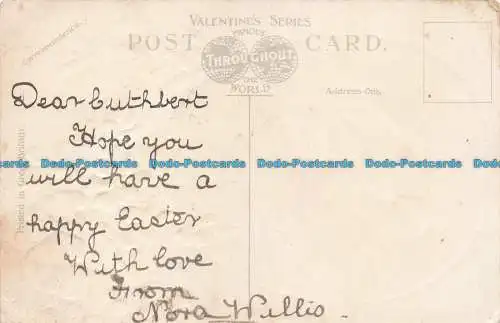 VALENTINE'S SERIES
POST CARD.
FAMOUS
THROUGHOUT
THE
WORLD
Correspondence.
Address Only.
Printed in Great Britain
Dear Cuthbert
Hope you
will have a
happy Easter
With love
From
Nora Willis.
Dodo-Postcards Dodo-Postcards Dodo-Postcards Dodo-Postcards Dodo-Postcards